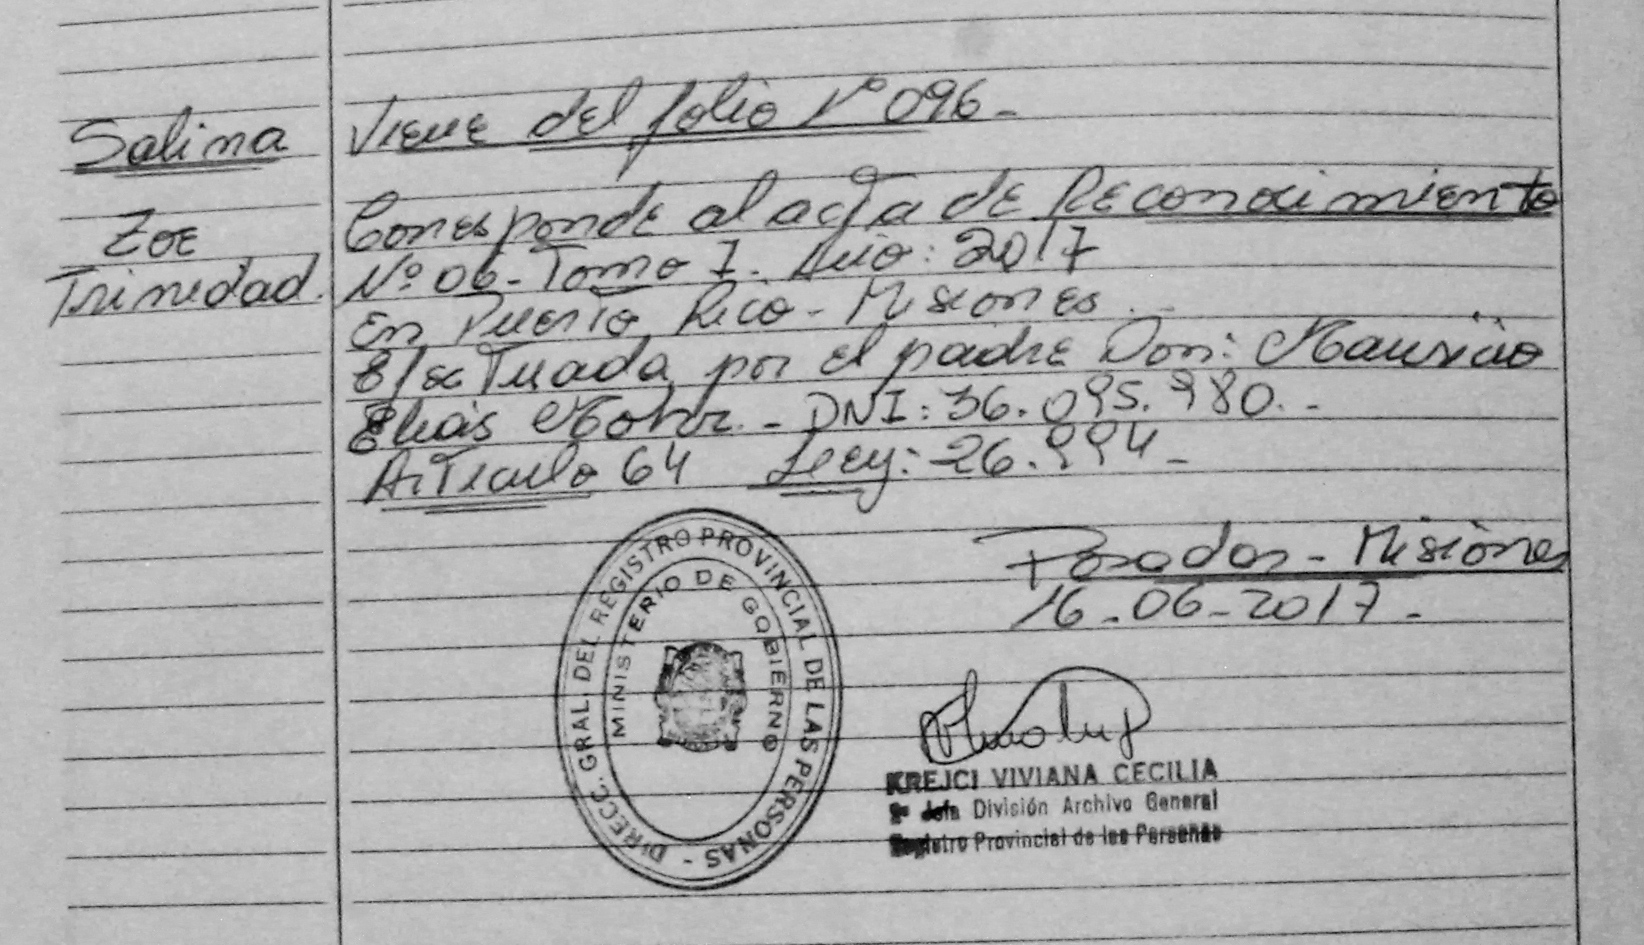 Salina
Zoe
Trinidad.
Viene del folio Nº 096-
Corresponde al acta de Reconocimiento
Nº 06- Tomo I. Año: 2017
En Puerto Rico - Misiones.-
Efectuada por el padre Don: Mauricio
Elias - DNI: 36.095.980.-
Articulo 64 Ley: 26.994-
Posadas - Misiones
16-06-2017.-
DIRECC. GRAL. DEL REGISTRO PROVINCIAL DE LAS PERSONAS -
MINISTERIO DE GOBIERNO
KREJCI VIVIANA CECILIA
2º Jefa División Archivo General
Registro Provincial de las Personas